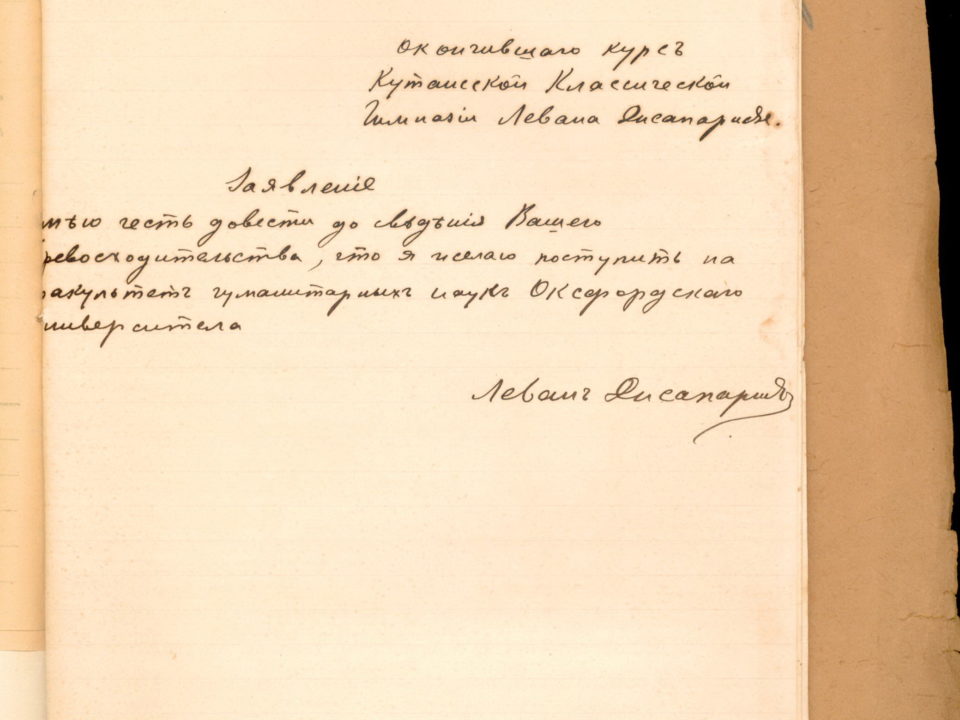 окончившаго курсъ
Кутаисской Классической
Гимназіи Левана Джапаридзе.
Заявленіе
мѣю честь довести до свѣдѣнія Вашего
ревосходительства, что я желаю поступить на
факультетъ гуманитарныхъ наукъ Оксфордскаго
ниверситета
Леванъ Джапаридзе